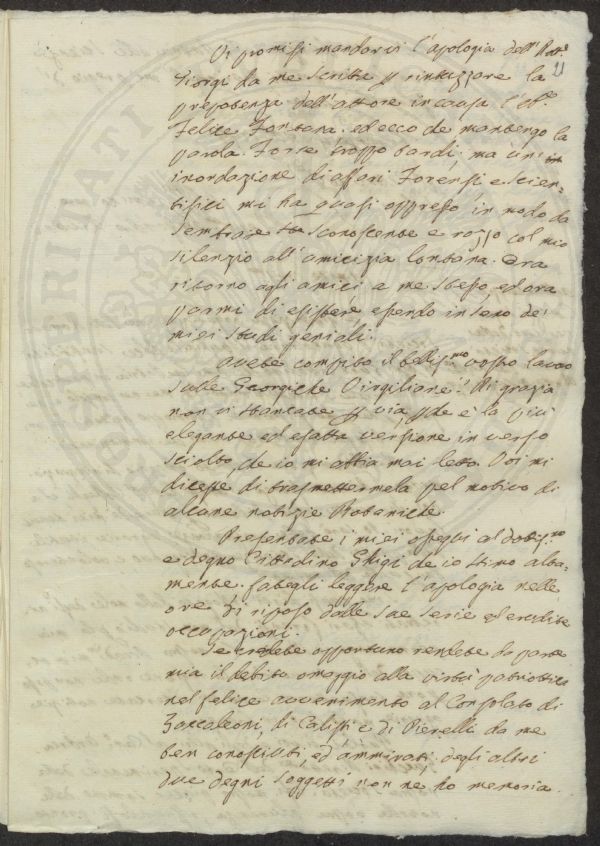 Vi promisi mandarvi l'apologia dell'Ab.e
21
Giorgi da me scritta p rintuzzare la
prepotenza dell'attore in causa l'Ab.e
Felice Fontana. ed ecco che mantengo la
parola. Forse troppo tardi; ma un'
inondazione di affari Forensi e Scien-
tifici mi ha quasi oppresso in modo da
sembrare sconoscente e rozzo col mio
silenzio all'amicizia lontana. Ora
ritorno agli amici a me stesso, ed ora
parmi di esistere essendo in seno de'
miei studi geniali.
Avete compito il bellis.mo vostro lavoro
sulle Georgiche Virgiliane? Di grazia
non vi stancate p via, pche è la più
elegante ed esatta versione in verso
sciolto, che io mi abbia mai letto. Voi mi
diceste di trasmettermela pel motivo di
alcune notizie Botaniche.
Presentate i miei ossequi al dottiss.mo
e degno Cittadino Ghigi che io stimo alta-
mente. fategli leggere l'apologia nelle
ore di riposo dalle sue serie ed erudite
occupazioni.
Se credete opportuno rendete da parte
mia il debito omaggio alla virtù patriottica
nel felice avvenimento al Consolato di
Zaccaleoni, di Calisti e di Pierelli da me
ben conosciuti, ed ammirati. degli altri
due degni soggetti non ne ho memoria.